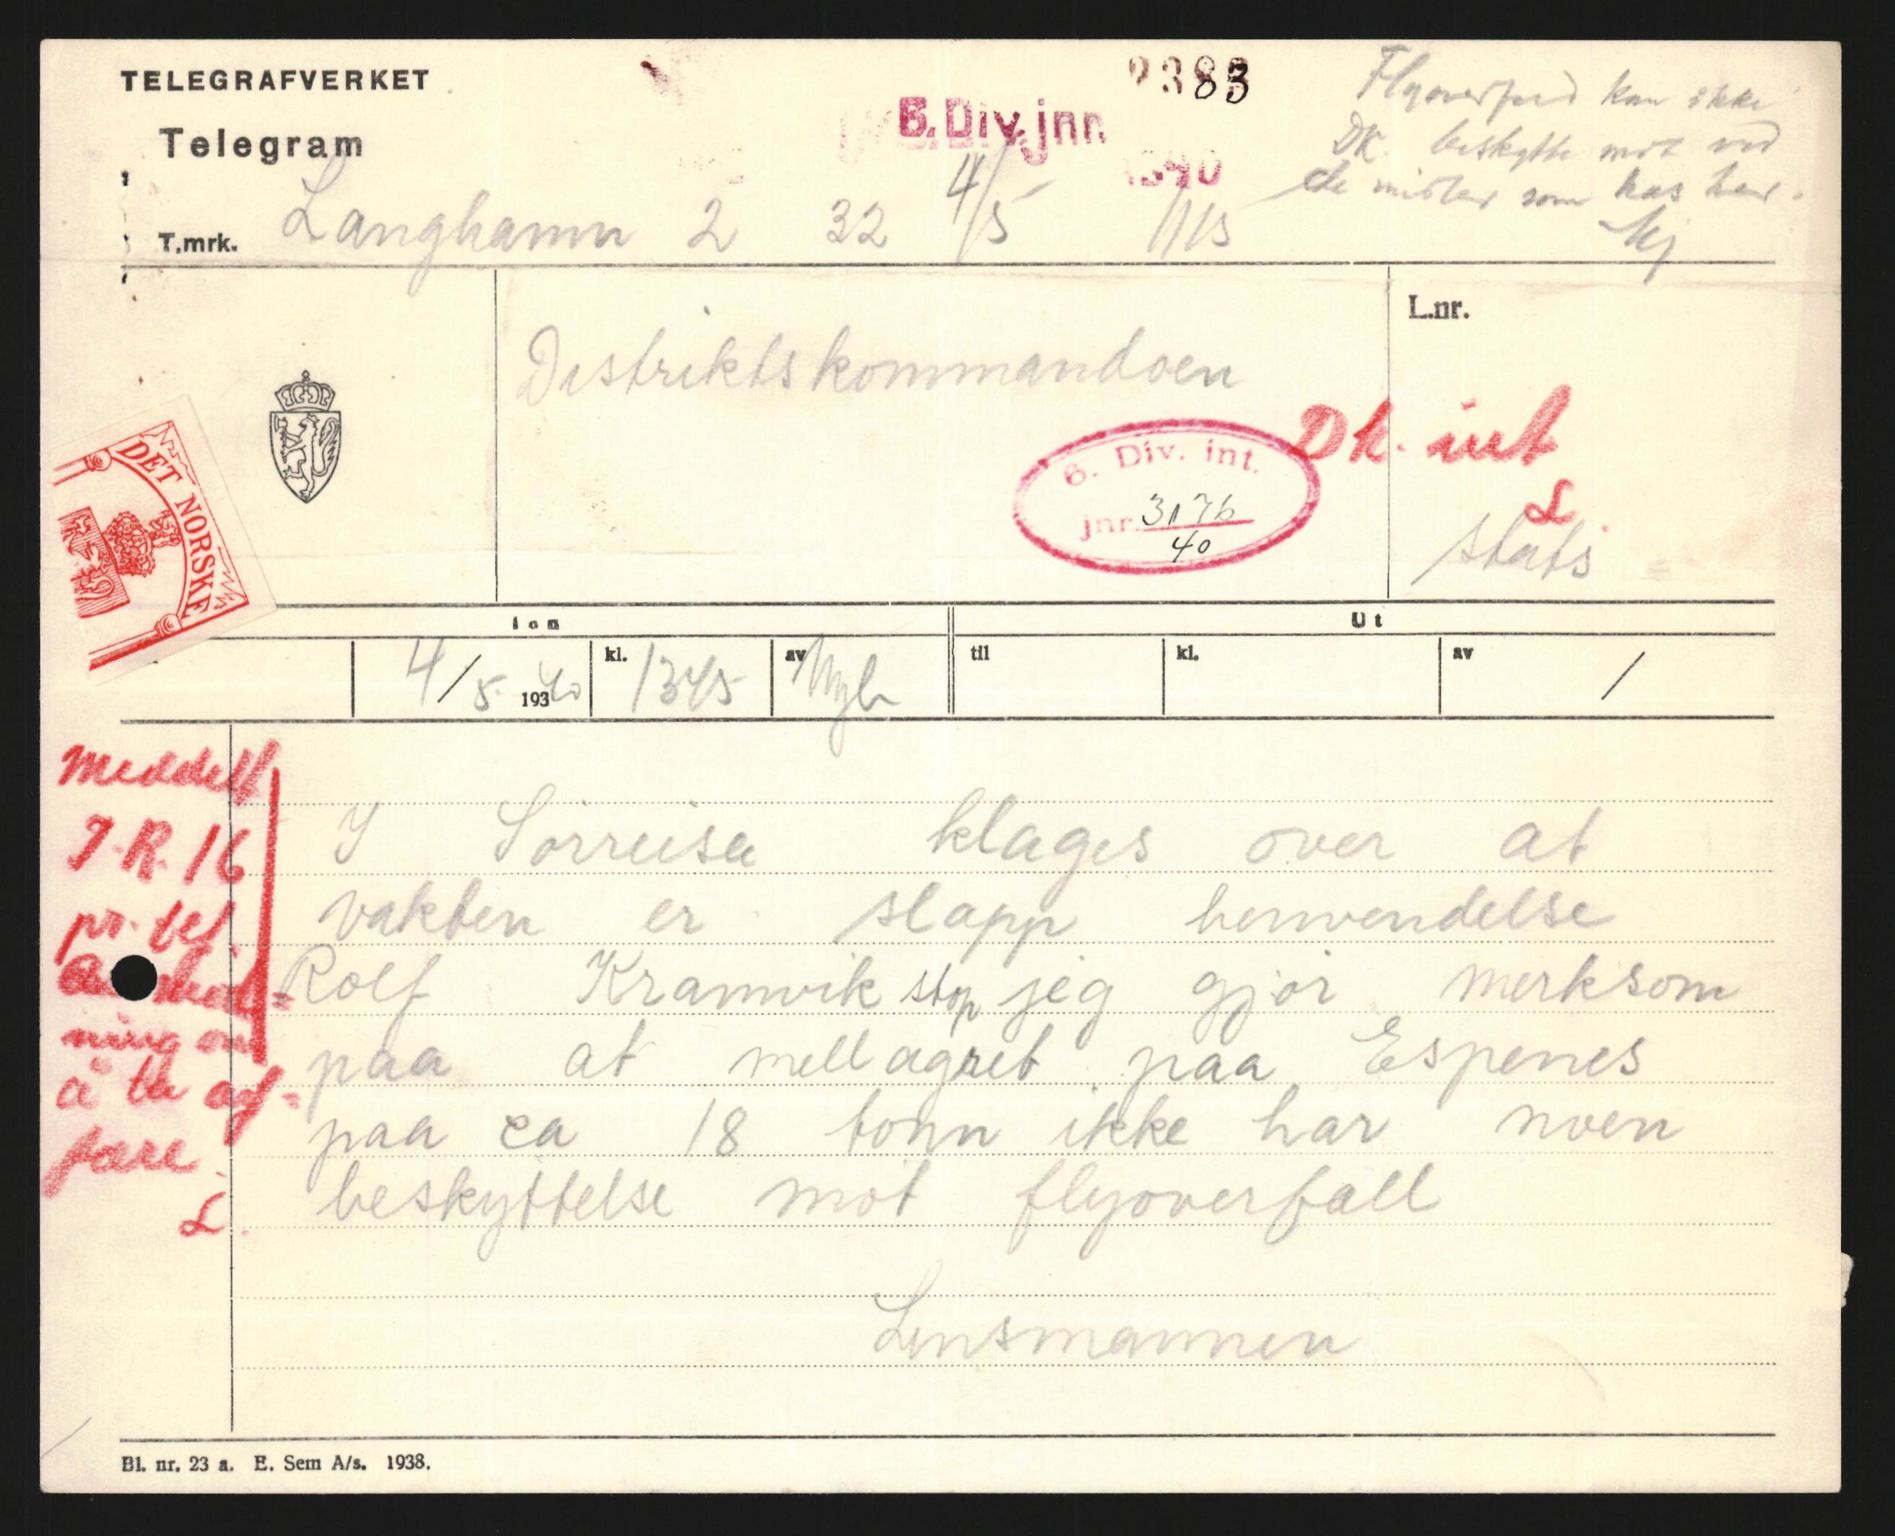 TELEGRAFVERKET
Telegram
6. Div. jnr.
2383
1940
Flyoverfall kan ikke
DK. beskytte mot ved
de midler som has her.
T.mrk. Langhamn 2 32 4/5 1115
Distriktskommandoen
L.nr.
Dk. int
L.
stats
6. Div. int.
jnr. 3176
40
DET NORSKE
Ut
4/5 1940 kl. 1345 av til kl. av /
Meddelt
I.R. 16
pr. tel.
ning om
å ta af-
fære
L.
I Sörreisa klages over at
vakten er slapp henvendelse
Rolf Kramvik stop jeg gjör merksom
paa at mellagret paa Espenes
paa ca 18 tonn ikke har noen
beskyttelse mot flyoverfall
Lensmannen
Bl. nr. 23 a. E. Sem A/s. 1938.